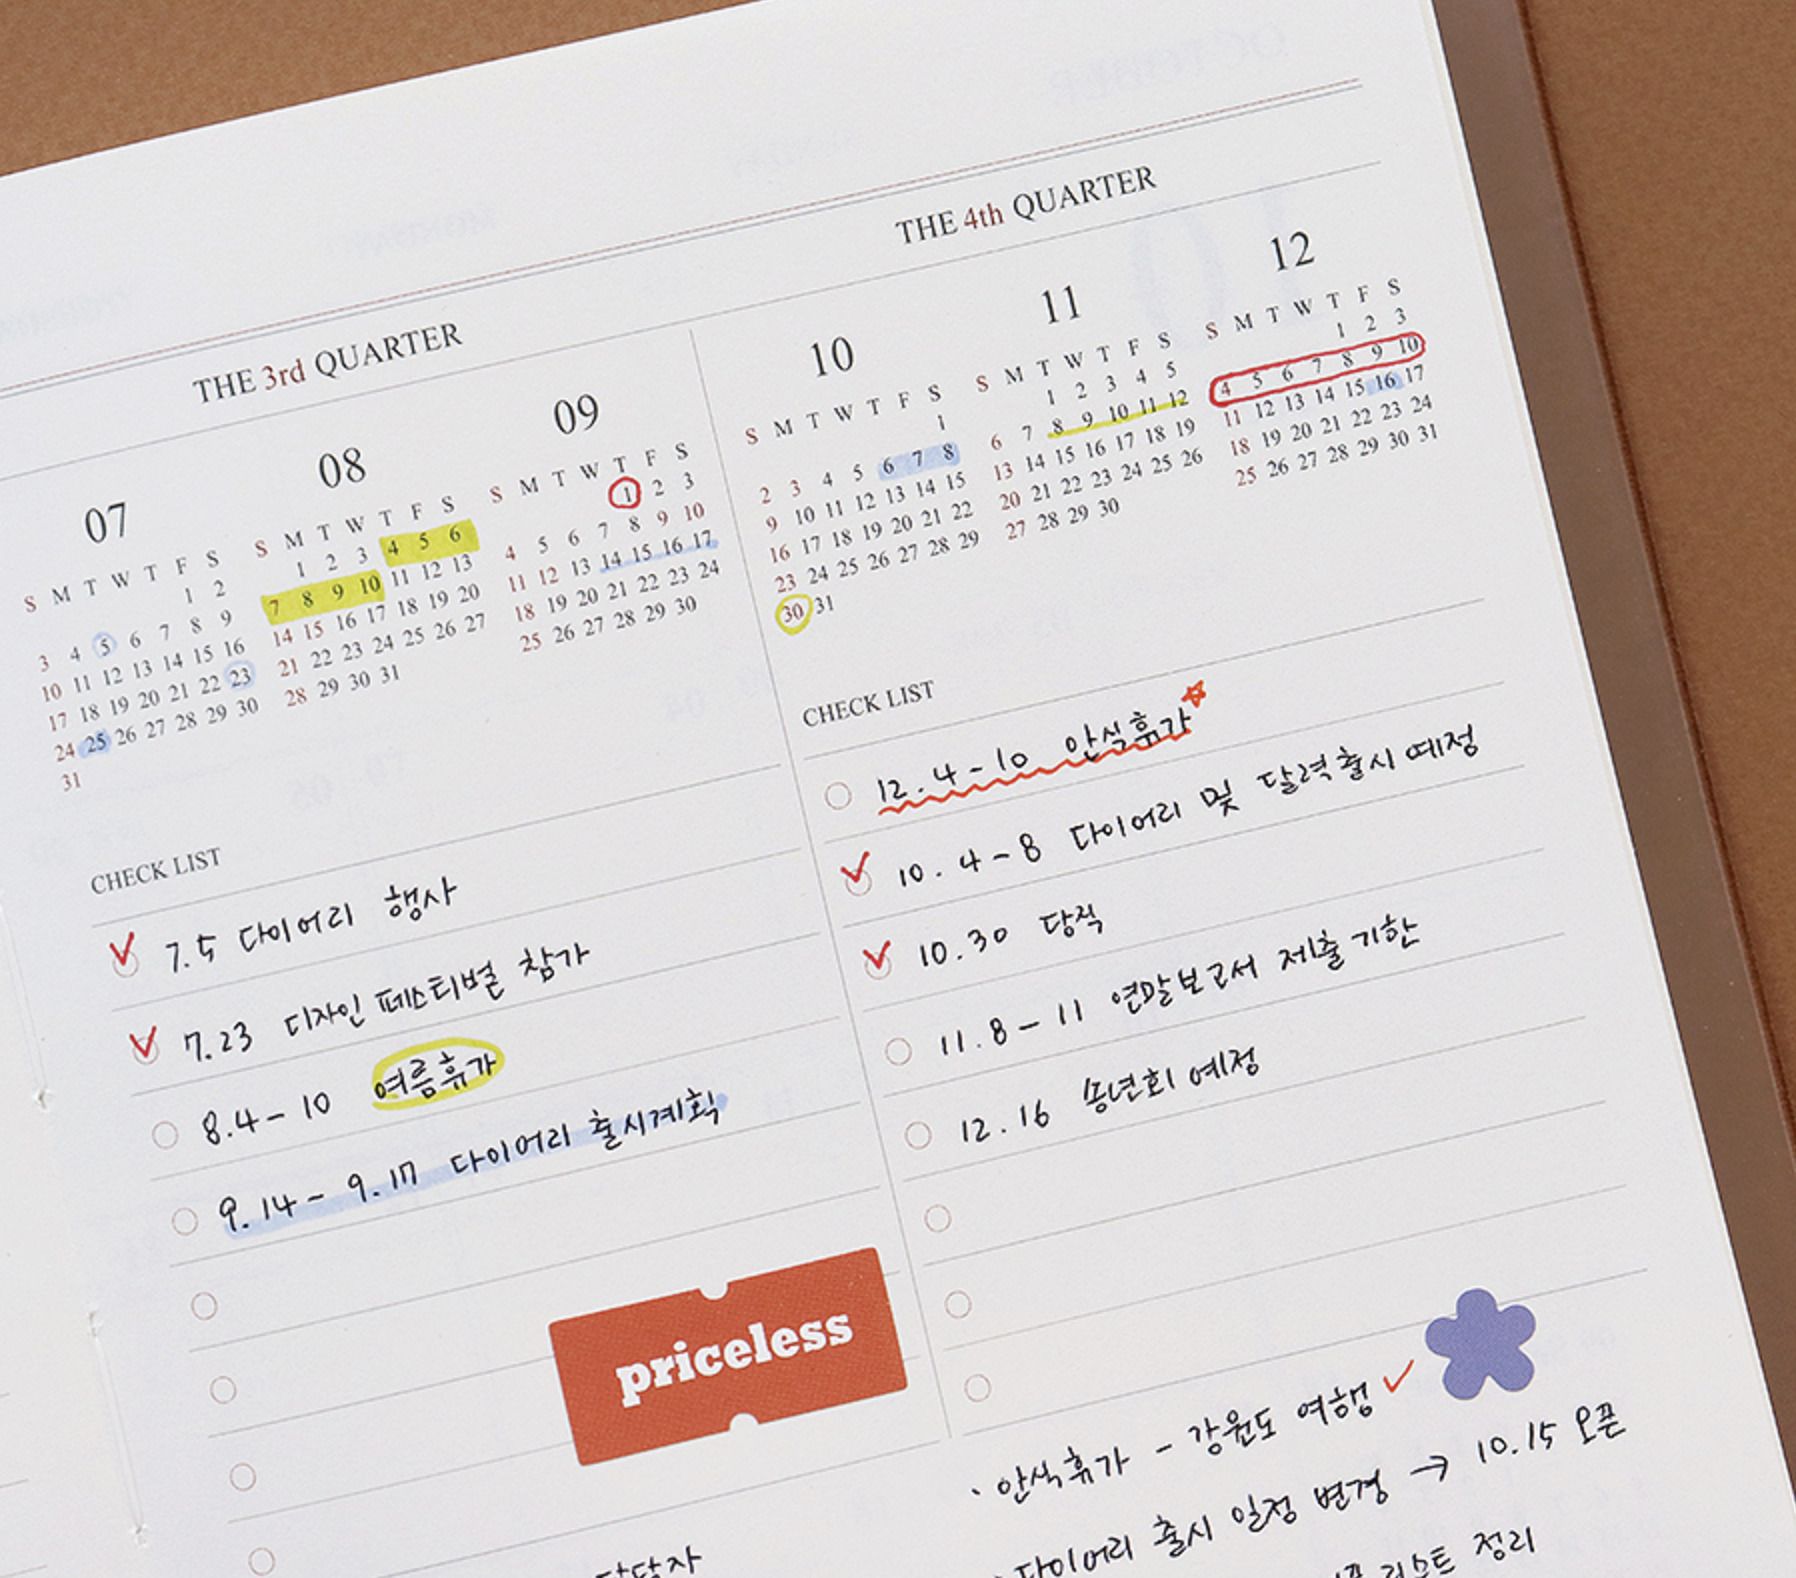 THE 3rd QUARTER
07
S M T W T F S
1 2
3 4 5 6 7 8 9
10 11 12 13 14 15 16
17 18 19 20 21 22 23
24 25 26 27 28 29 30
31
08
S M T W T F S
1 2 3 4 5 6
7 8 9 10 11 12 13
14 15 16 17 18 19 20
21 22 23 24 25 26 27
28 29 30 31
09
S M T W T F S
1 2 3
4 5 6 7 8 9 10
11 12 13 14 15 16 17
18 19 20 21 22 23 24
25 26 27 28 29 30
CHECK LIST
7.5 다이어리 행사
7.23 디자인 페스티벌 참가
8.4-10 여름휴가
9.14- 9.17 다이어리 출시계획
priceless
담당자
THE 4th QUARTER
10
S M T W T F S
1
2 3 4 5 6 7 8
9 10 11 12 13 14 15
16 17 18 19 20 21 22
23 24 25 26 27 28 29
30 31
11
S M T W T F S
1 2 3 4 5
6 7 8 9 10 11 12
13 14 15 16 17 18 19
20 21 22 23 24 25 26
27 28 29 30
12
S M T W T F S
1 2 3
4 5 6 7 8 9 10
11 12 13 14 15 16 17
18 19 20 21 22 23 24
25 26 27 28 29 30 31
CHECK LIST
12.4-10 안식휴가
10.4-8 다이어리 및 달력출시 예정
10.30 당직
11.8-11 연말보고서 제출기한
12.16 송년회 예정
· 안식휴가 - 강원도 여행
· 다이어리 출시 일정 변경 → 10.15 오픈
리스트 정리